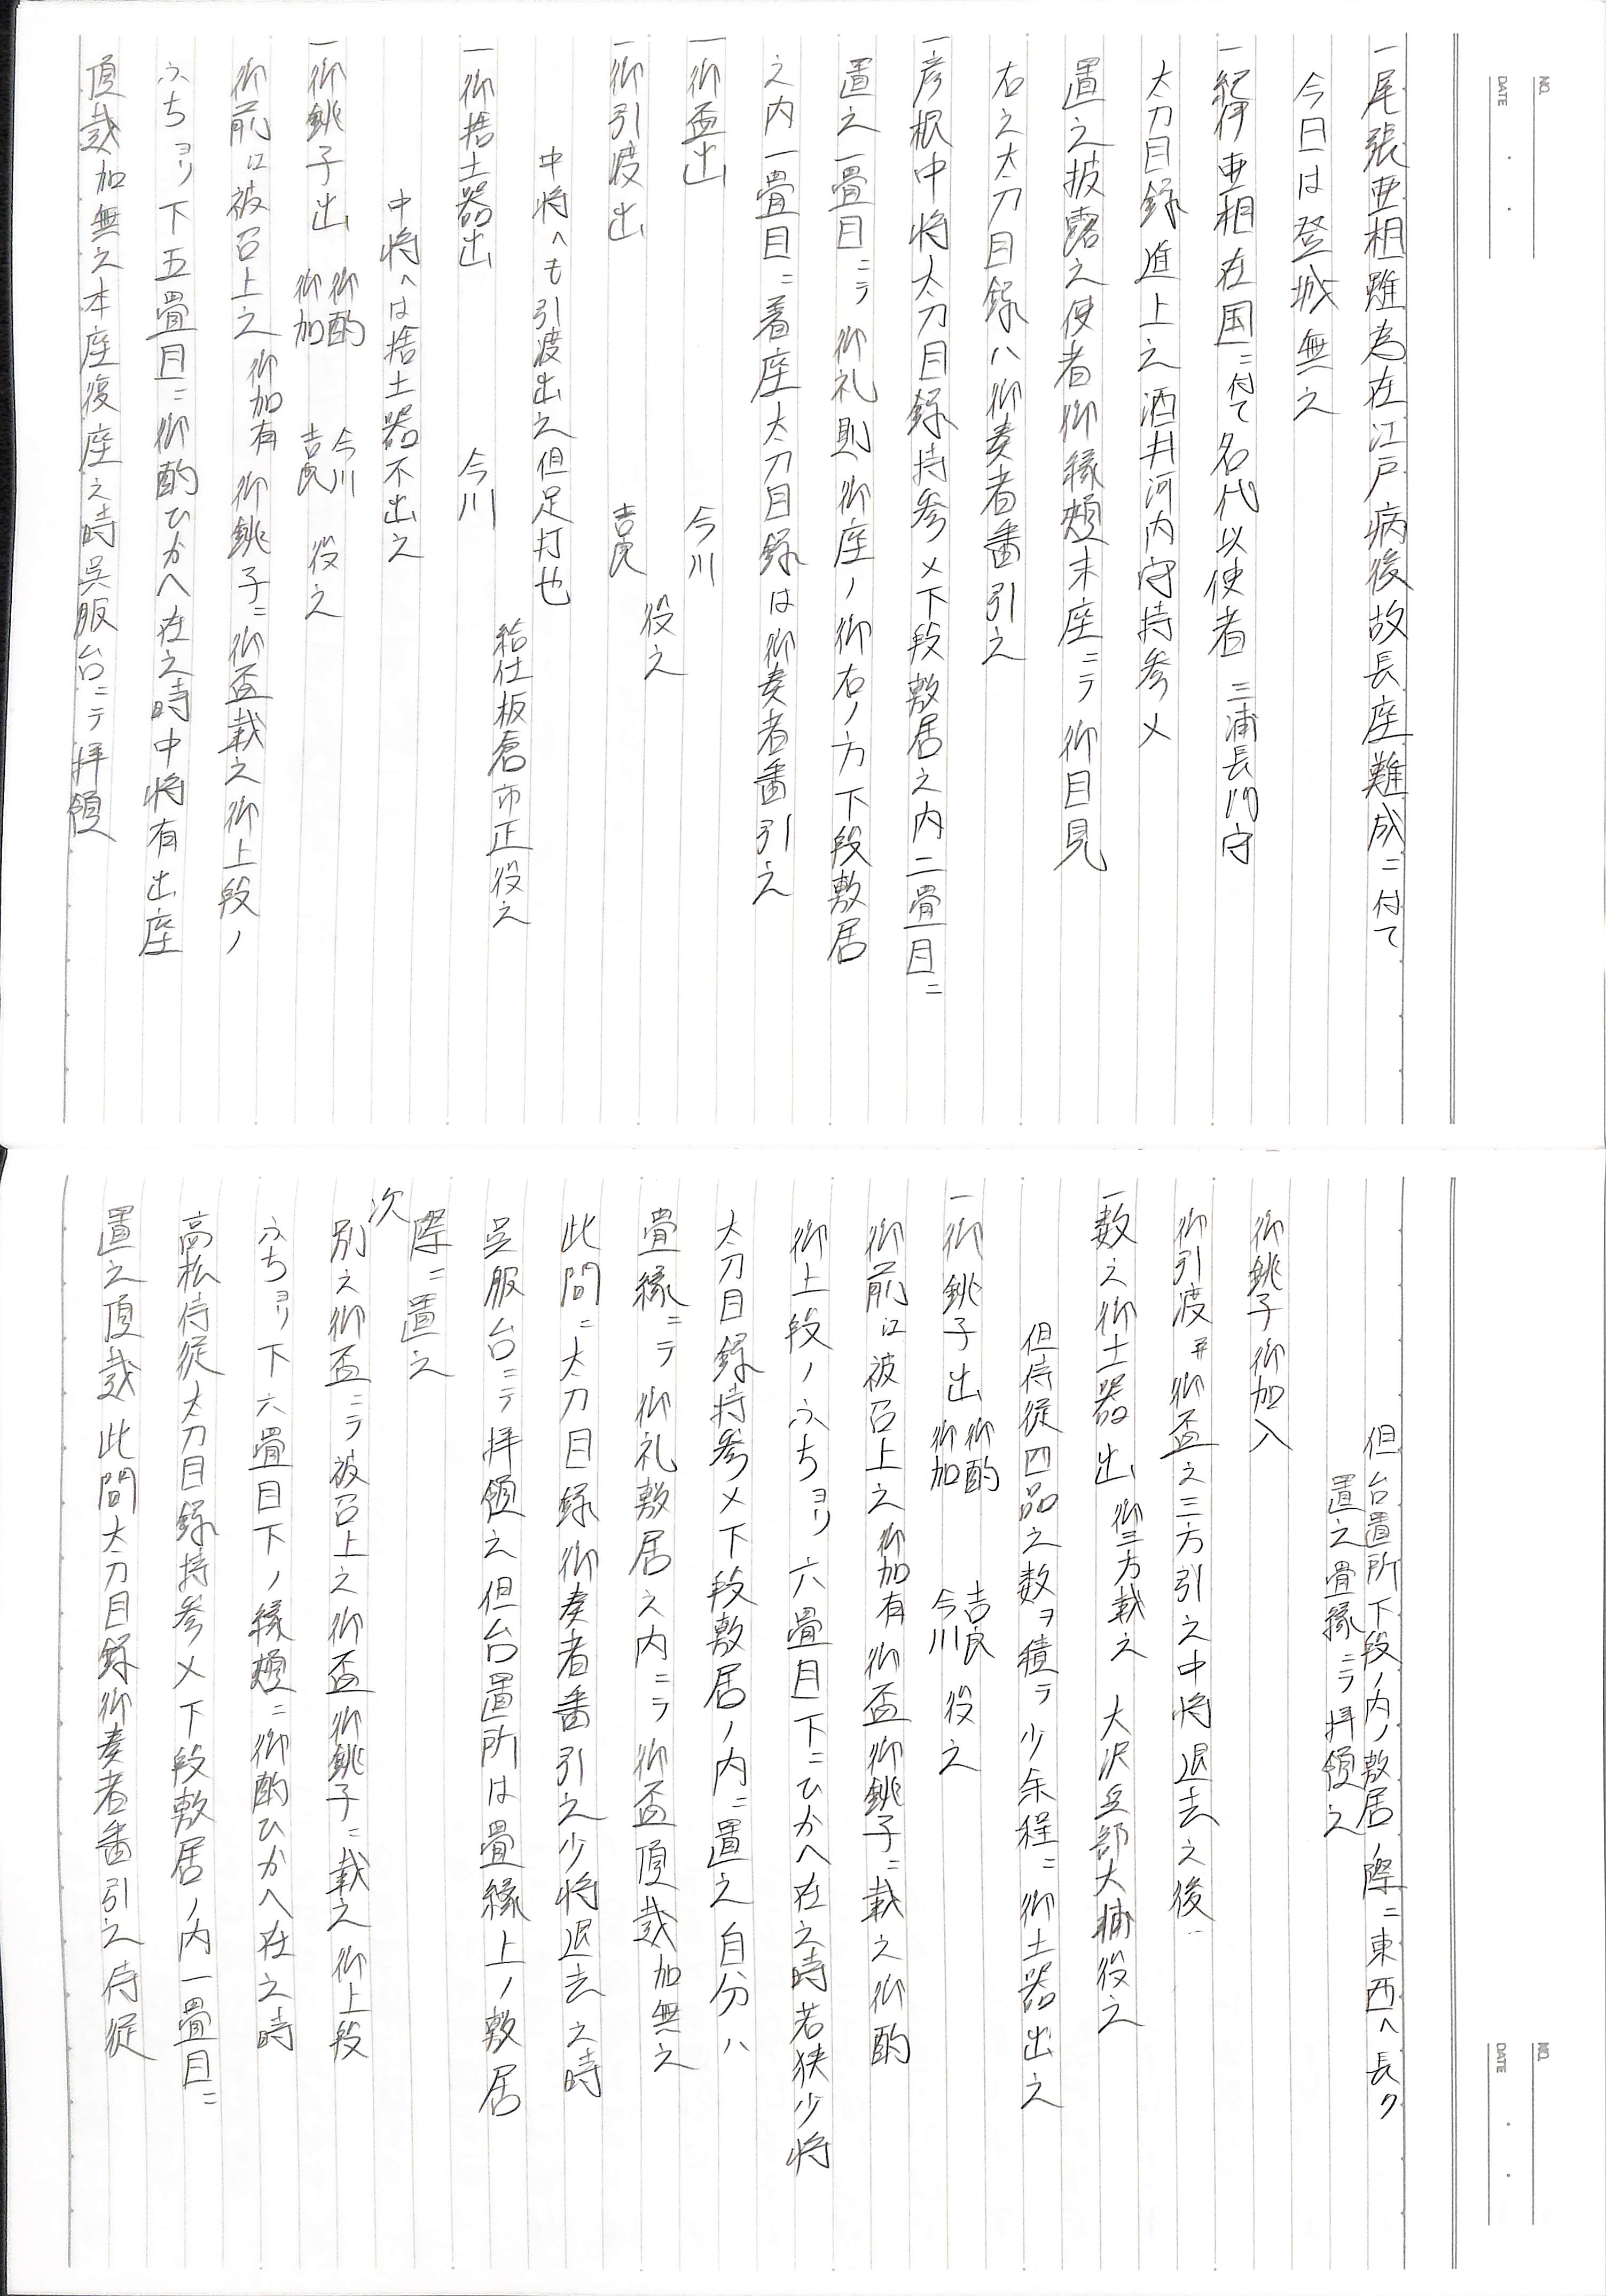 NO.
DATE
一尾張亜相雖為在江戸病後故長座難成ニ付て
今日は登城無之
一紀伊亜相在国ニ付て名代以使者三浦長門守
太刀目録進上之酒井河内守持参〆
置之披露之使者御縁頬末座ニテ御目見
右之太刀目録ハ御奏者番引之
一彦根中将太刀目録持参〆下段敷居之内二畳目ニ
置之一畳目ニテ御礼則御座ノ御右ノ方下段敷居
之内一畳目ニ着座太刀目録は御奏者番引之
一御盃出 今川
役之
一御引渡出 吉良
中将へも引渡出之但足打也
給仕板倉市正役之
一御捨土器出 今川
中将へは捨土器不出之
一御銚子出 御酌 御加 今川 吉良 役之
御前江被召上之御加有御銚子ニ御盃載之御上段ノ
ふちヨリ下五畳目ニ御酌ひかへ在之時中将有出座
頂戴加無之本座復座之時呉服台ニテ拝領
NO.
DATE
但台置所下段ノ内ノ敷居ノ際ニ東西へ長ク
置之畳縁ニテ拝領之
御銚子御加入
御引渡并御盃之三方引之中将退去之後
一数之御土器出御三方載之 大沢兵部大輔役之
但侍従四品之数ヲ積テ少余程ニ御土器出之
一御銚子出 御酌 御加 吉良 今川 役之
御前江被召上之御加有御盃御銚子ニ載之御酌
御上段ノふちヨリ六畳目下ニひかへ在之時若狭少将
太刀目録持参〆下段敷居ノ内ニ置之自分ハ
畳縁ニテ御礼敷居之内ニテ御盃頂戴加無之
此間ニ太刀目録御奏者番引之少将退去之時
呉服台ニテ拝領之但台置所は畳縁上ノ敷居
際ニ置之
次
別之御盃ニテ被召上之御盃御銚子ニ載之御上段
ふちヨリ下六畳目下ノ縁頬ニ御酌ひかへ在之時
高松侍従太刀目録持参〆下段敷居ノ内一畳目ニ
置之頂戴此間太刀目録御奏者番引之侍従